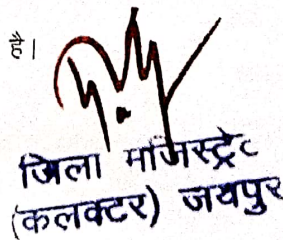 है।
जिला मजिस्ट्रेट
(कलक्टर) जयपुर